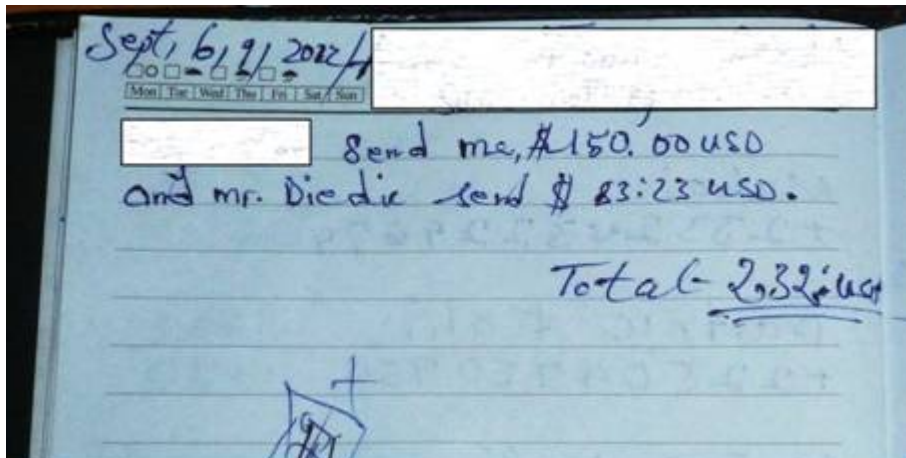 Sept, 6, 9, 2022
Mon Tue Wed Thu Fri Sat Sun
Send me, $150.00 USD
and mr. Diedie send $ 83:23 USD.
Total- 232: usd